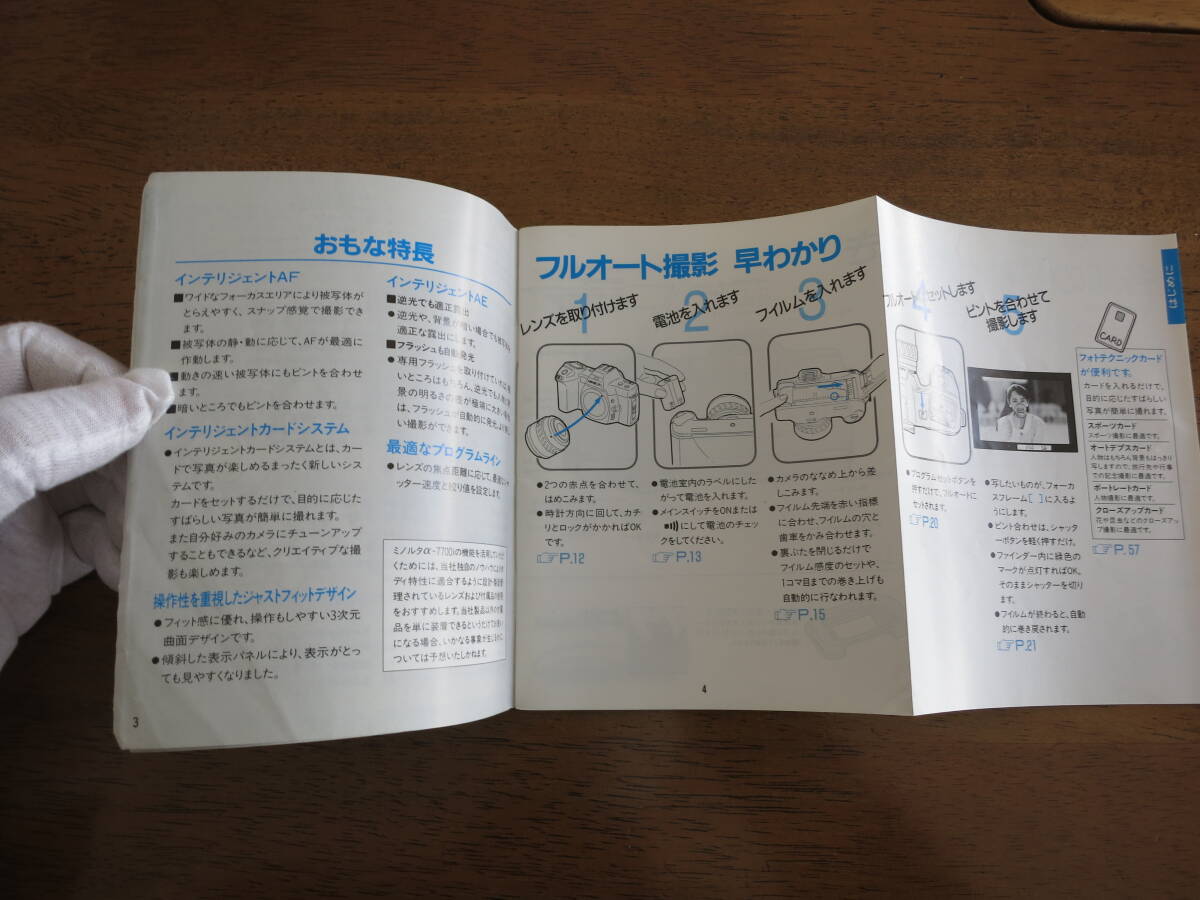 おもな特長
インテリジェントAF
■ワイドなフォーカスエリアにより被写体が
とらえやすく、スナップ感覚で撮影でき
ます。
■被写体の静・動に応じて、AFが最適に
作動します。
■動きの速い被写体にもピントを合わせ
ます。
■暗いところでもピントを合わせます。
インテリジェントカードシステム
●インテリジェントカードシステムとは、カー
ドで写真が楽しめるまったく新しいシス
テムです。
カードをセットするだけで、目的に応じた
すばらしい写真が簡単に撮れます。
また自分好みのカメラにチューンアップ
することもできるなど、クリエイティブな撮
影も楽しめます。
操作性を重視したジャストフィットデザイン
●フィット感に優れ、操作もしやすい3次元
曲面デザインです。
●傾斜した表示パネルにより、表示がとっ
ても見やすくなりました。
3
インテリジェントAE
■逆光でも適正露出
●逆光や、背景が暗い場合でも被写体
適正な露出にします。
■フラッシュも自動発光
●専用フラッシュを取り付けていれば、暗
いところはもちろん、逆光でも人物
景の明るさの差が極端に大きい場合
は、フラッシュが自動的に発光
い撮影ができます。
最適なプログラムライン
●レンズの焦点距離に応じて、最適なシャ
ッター速度と絞り値を設定します。
ミノルタα-7700iの機能を活用していただ
くためには、当社独自のノウハウによりボ
ディ特性に適合するように設計・製造管
理されているレンズおよび付属品の使用
をおすすめします。当社製品以外の付属
品を単に装着できるというだけでお使い
になる場合、いかなる事故が生じるかに
ついては予想いたしかねます。
フルオート撮影 早わかり
1
レンズを取り付けます
●2つの赤点を合わせて、
はめこみます。
●時計方向に回して、カチ
リとロックがかかればOK
です。
☞P.12
2
電池を入れます
●電池室内のラベルにした
がって電池を入れます。
●メインスイッチをONまたは
にして電池のチェッ
クをしてください。
☞P.13
3
フィルムを入れます
●カメラのななめ上から差
しこみます。
●フィルム先端を赤い指標
に合わせ、フィルムの穴と
歯車をかみ合わせます。
●裏ぶたを閉じるだけで
フィルム感度のセットや、
1コマ目までの巻き上げも
自動的に行なわれます。
☞P.15
4
4
フルオートにセットします
●プログラムセットボタンを
押すだけで、フルオートに
セットされます。
☞P.20
5
ピントを合わせて
撮影します
●写したいものが、フォーカ
スフレーム[ ]に入るよ
うにします。
●ピント合わせは、シャッタ
ーボタンを軽く押すだけ。
●ファインダー内に緑色の
マークが点灯すればOK。
そのままシャッターを切り
ます。
●フィルムが終わると、自動
的に巻き戻されます。
☞P.21
はじめに
CARD
フォトテクニックカード
が便利です。
カードを入れるだけで、
目的に応じたすばらしい
写真が簡単に撮れます。
スポーツカード
スポーツ撮影に最適です。
オートデプスカード
人物はもちろん背景もはっきり
写しますので、旅行先や行事
での記念撮影に最適です。
ポートレートカード
人物撮影に最適です。
クローズアップカード
花や昆虫などのクローズアッ
プ撮影に最適です。
☞P.57